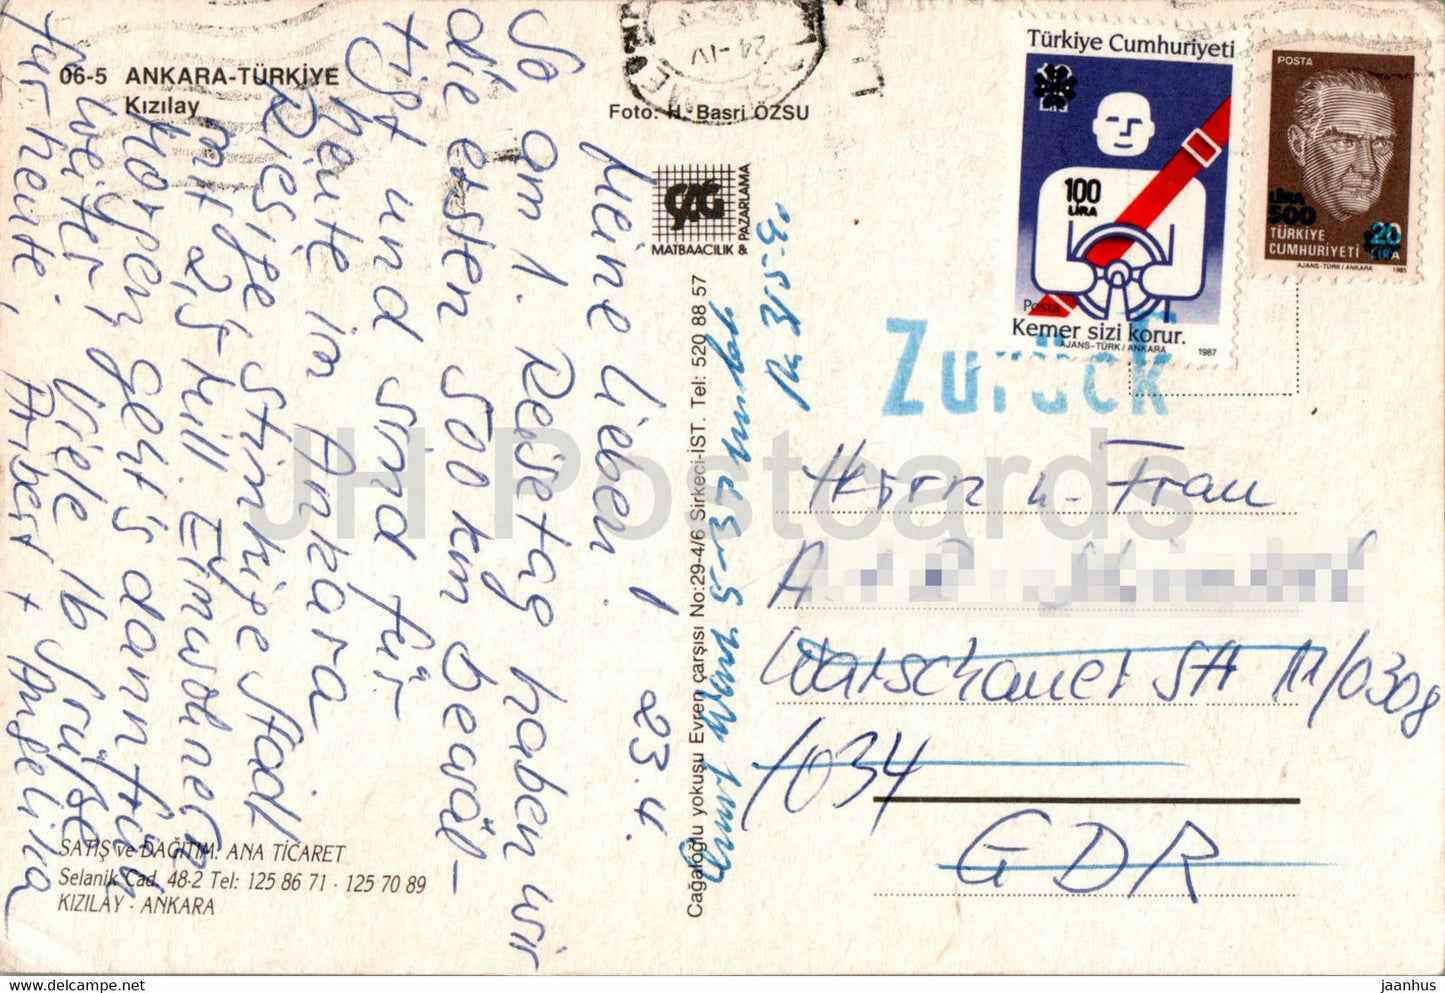 06-5 ANKARA-TÜRKİYE
Kızılay
Foto: H. Basri ÖZSU
ÇAG
MATBAACILIK
& PAZARLAMA
Cağaloğlu yokuşu Evren çarşısı No:29-4/6 Sirkeci-İST. Tel: 520 88 57
SATIŞ ve DAĞITIM: ANA TİCARET
Selanik Cad. 48-2 Tel: 125 86 71 - 125 70 89
KIZILAY - ANKARA
Meine lieben! 23.4.
So am 1. Reisetag haben wir
die ersten 500 km bewäl-
tigt und sind für
heute im Ankara
Riesige stinkige Stadt
mit 2,5 Mill. Einwohnern
Morgen geht's dann früh
weiter, Viele lb Grüße
für heute,
Angelina
24-IV
Türkiye Cumhuriyeti
LİRA
100
LİRA
Posta
Kemer sizi korur.
AJANS-TÜRK/ANKARA 1987
POSTA
LİRA
500
20
LİRA
TÜRKİYE
CUMHURİYETİ
AJANS-TÜRK/ANKARA 1985
Zurück
Herrn u. Frau
A
Warschauer Str 11/0308
1034
GDR
JH Postcards
jaanhus